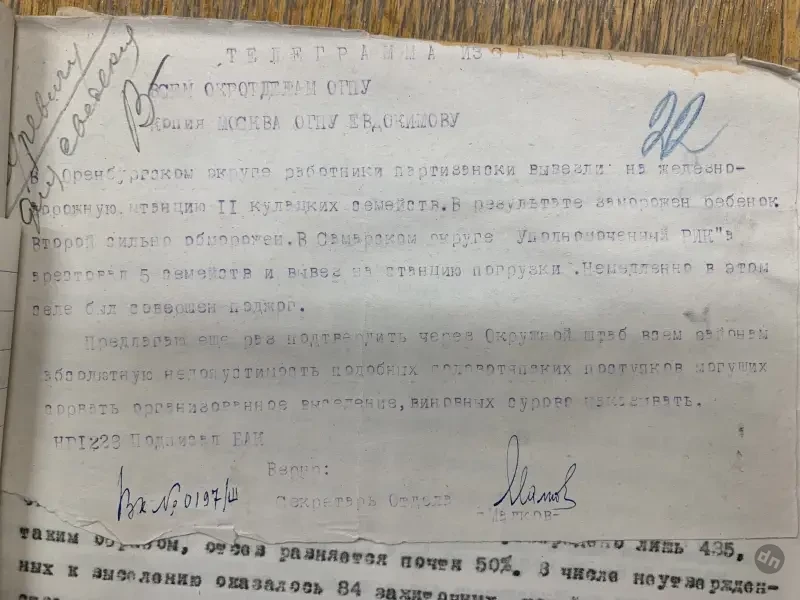 ТЕЛЕГРАММА ИЗ
ВСЕМ ОКРОТДЕЛАМ ОГПУ
Копия МОСКВА ОГПУ ЕВДОКИМОВУ
22
В Оренбургском округе работники партизански вывезли на железно-
дорожную станцию II кулацких семейств. В результате заморожен ребенок
второй сильно обморожен. В Самарском округе Уполномоченный РИК"а
арестовал 5 семейств и вывез на станцию погрузки. Немедленно в этом
селе был совершен поджог.
Предлагаю еще раз подтвердить через Окружной штаб всем районам
абсолютную недопустимость подобных головотяпских поступков могущих
сорвать организованное выселение, виновных сурово наказывать.
НР1223 Подписал БАК
Верно:
Вх № 0197/ш
Секретарь Отдела
лишь 435,
таким образом, отсев разняется почти 50%. В числе неутвержден-
ных к выселению оказалось 84 зажиточных
dn